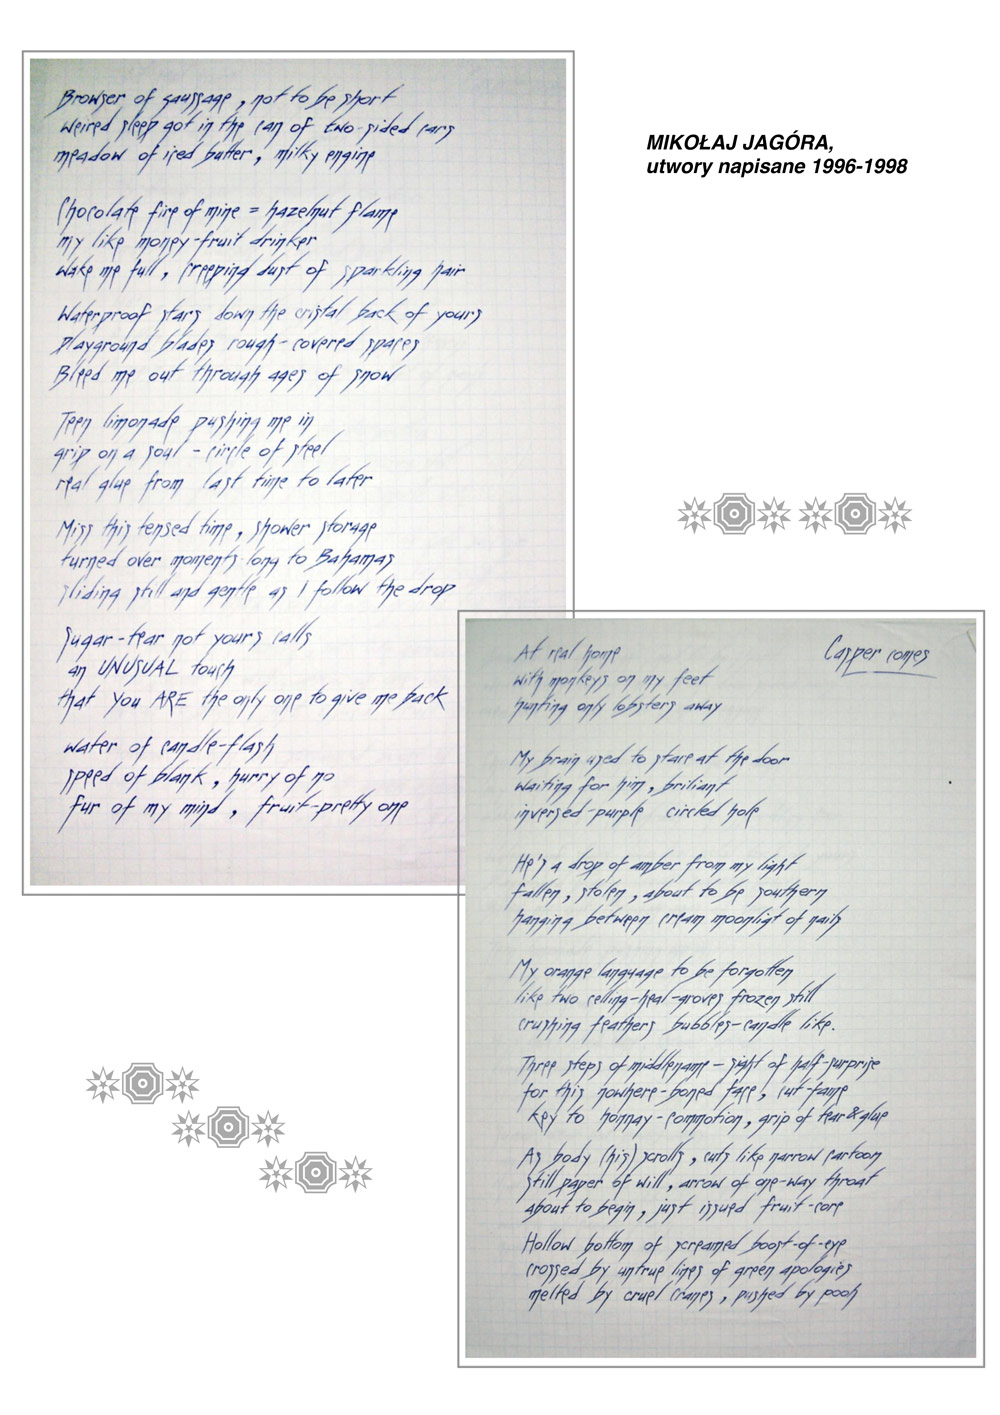 Browser of saussage, not to be short
weired sleep got in the can of two-sided cars
meadow of iced butter, milky engine
Chocolate fire of mine = hazelnut flame
my like money-fruit drinker
wake me full, creeping dust of sparkling hair
Waterproof stars down the cristal back of yours
playground blades rough-covered spaces
Bleed me out through ages of snow
Teen limonade pushing me in
grip on a soul - circle of steel
real glue from last time to later
Miss this tensed time, shower storage
turned over moments long to Bahamas
sliding still and gentle as I follow the drop
Sugar-tear not yours calls
an UNUSUAL touch
that You ARE the only one to give me back
water of candle-flash
speed of blank, hurry of no
fur of my mind, fruit-pretty one
MIKOŁAJ JAGÓRA,
utwory napisane 1996-1998
Casper comes
At real home
with monkeys on my feet
hunting only lobsters away
My brain used to stare at the door
waiting for him, briliant
inversed-purple circled hole
He's a drop of amber from my light
fallen, stolen, about to be southern
hanging between cream moonligt of nails
My orange language to be forgotten
like two celling-heal-groves frozen still
crushing feathers bubbles-candle like.
Three steps of middlename - sight of half-surprise
for this nowhere-boned face, cut-fame
key to honnay-commotion, grip of tear & glue
As body (his) scrolls, cuts like narrow cartoon
still paper of will, arrow of one-way throat
about to begin, just issued fruit-core
Hollow bottom of screamed boost-of-eye
crossed by untrue lines of green apologies
melted by cruel cranes, pushed by pooh